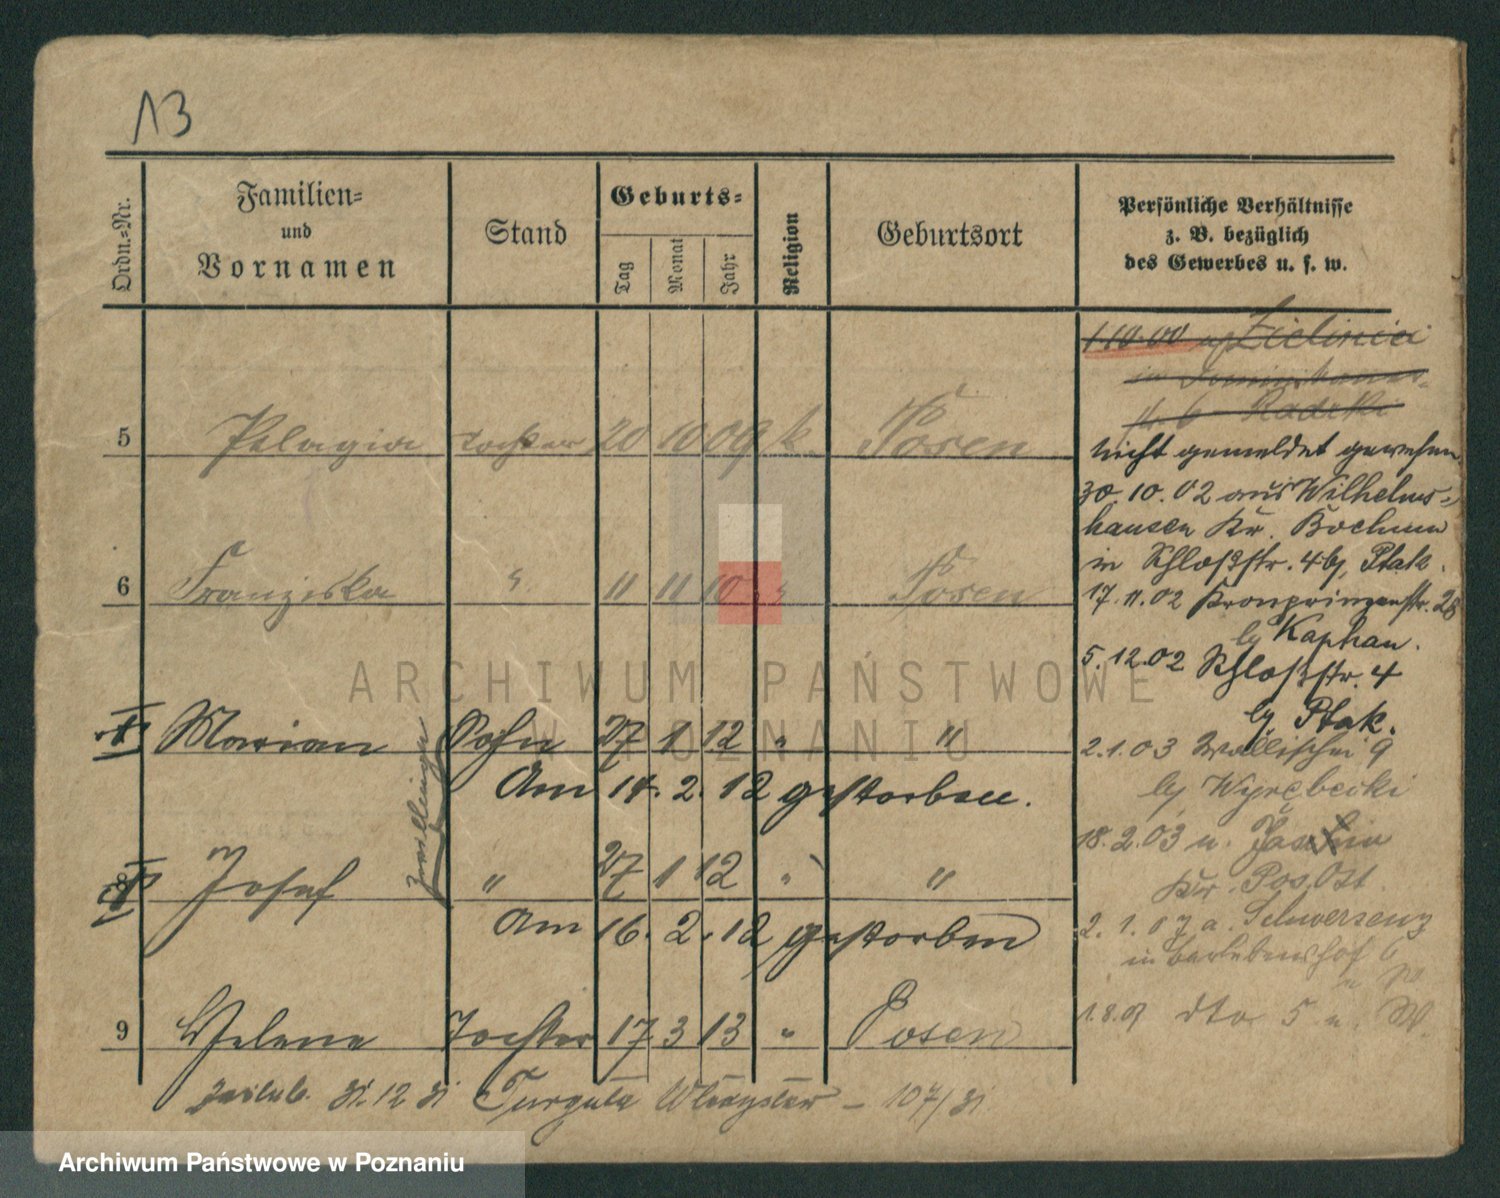 13
Ordn.-Nr.
Familien-
und
Vornamen
Stand
Geburts-
Tag
Monat
Jahr
Religion
Geburtsort
Persönliche Verhältnisse
z. B. bezüglich
des Gewerbes u. s. w.
1.10.00
5 Pelagia Tochter 20 10 09 k. Posen
6 Franziska " 11 11 10 " Posen
Marian Sohn 27 1 12 " "
Am 14. 2. 12 gestorben.
Zwillinge
Josef " 27 1 12 " "
Am 16. 2. 12 gestorben
9 Helene Tochter 17 3 13 " Posen
31.12 31 Turguła Władysław – 107/31
nicht gemeldet gewesen
30.10.02 aus Wilhelms-
hausen Kr. Bochum
in Schloßstr. 4 bj. Ptak.
17.11.02 Kronprinzenstr. 28
bj Kaphan.
5.12.02 Schloßstr. 4
bj Ptak.
2.1.03 Wallischei 9
bj Wyrębecki
18.2.03 n.
Kr. Pos. Ost
2.1.07 a. Schwersenz
in
1.8.07 dto 5
ARCHIWUM PAŃSTWOWE
W POZNANIU
Archiwum Państwowe w Poznaniu